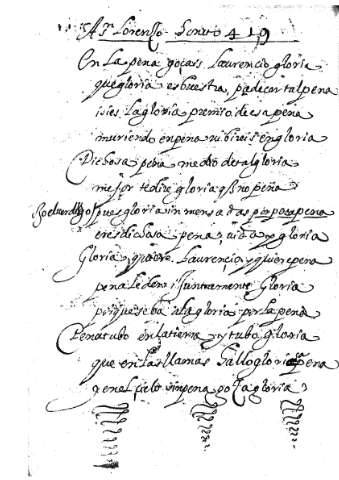 A sn Lorenço. Soneto 419
En La pena goçais Laurencio gloria
que gloria es buestra, padecer tal pena
si es La gloria premio de esa pena
muriendo en pena vibireis en gloria
Dichosa pena medio de tal gloria
mejor te dire gloria que no pena
pues gloria inmensa das por poca pena
eres dichosa pena, vida y gloria
Gloria, quiere Laurencio, y quiere pena
pena le den i Juntamente Gloria
porque se ba a la gloria por la pena
Pena tubo en la tierra y tubo gloria
que en las llamas hallo gloria pena
y en el çielo sin pena goça gloria